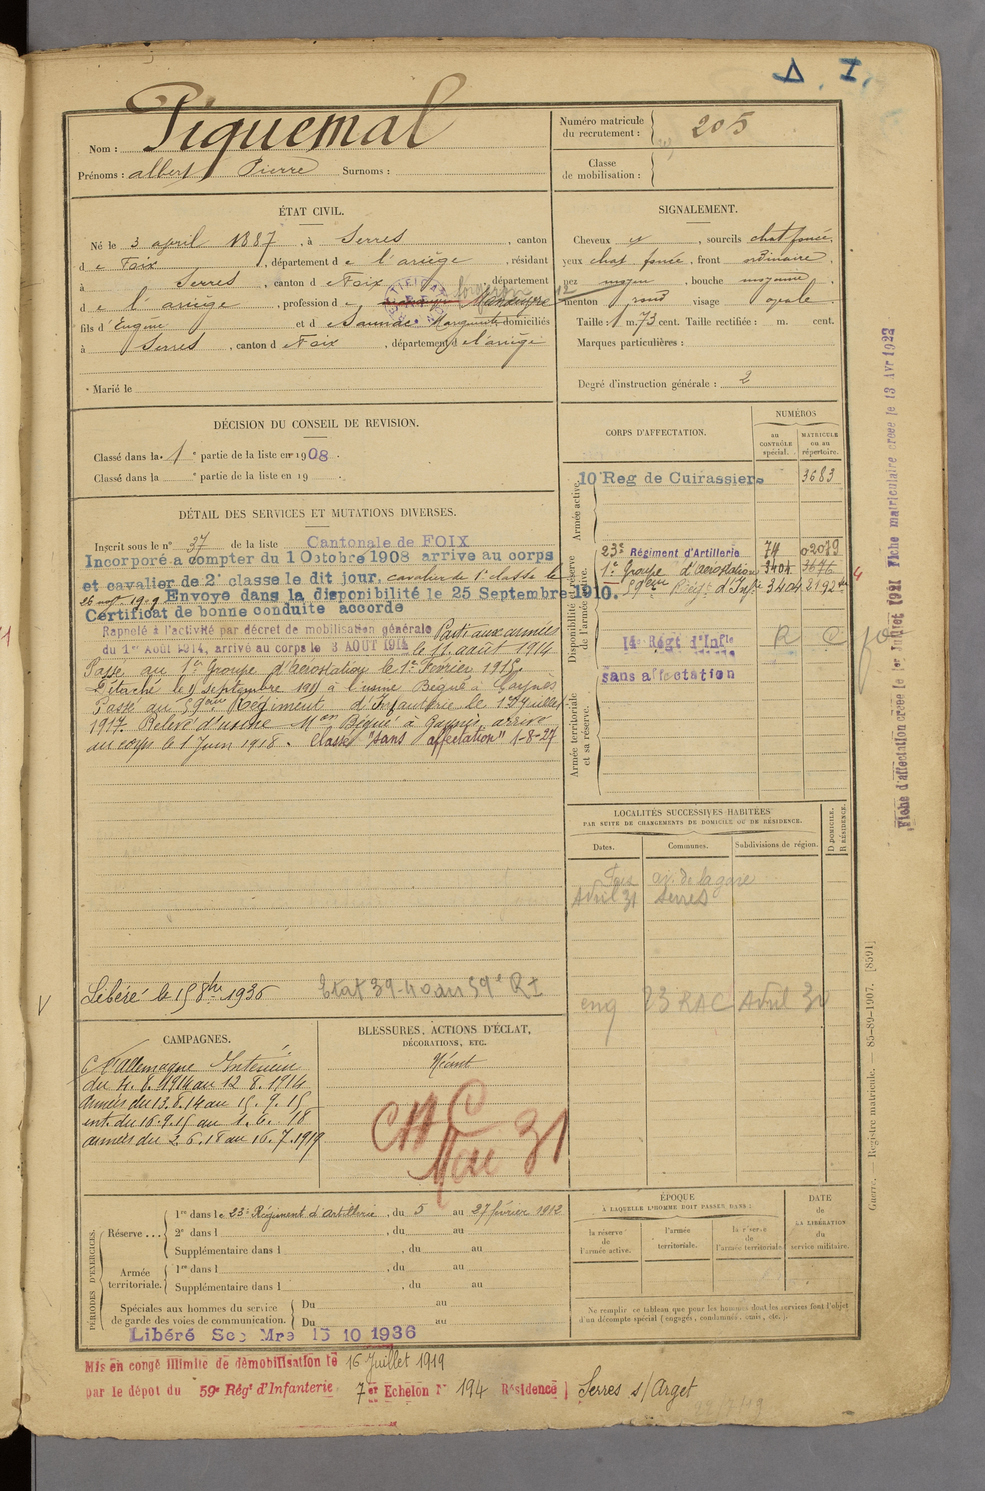 D. I.
Nom : Piquemal
Prénoms : albert Pierre Surnoms :
Numéro matricule du recrutement : 205
Classe de mobilisation :
ÉTAT CIVIL.
Né le 3 april 1887, à Serres, canton
de Foix, département de l'ariège, résidant
à Serres, canton de Foix, département
de l'ariège, profession de forgeron
fils d'Eugène et de Marguerite domiciliés
à Serres, canton de Foix, département de l'ariège
Marié le
SIGNALEMENT.
Cheveux , sourcils chat foncé,
yeux chat foncé, front ordinaire,
nez moyen, bouche moyenne,
menton rond visage ovale.
Taille : 1 m. 73 cent. Taille rectifiée : m. cent.
Marques particulières :
Degré d'instruction générale : 2
DÉCISION DU CONSEIL DE REVISION.
Classé dans la 1e partie de la liste en 1908.
Classé dans la e partie de la liste en 19 .
DÉTAIL DES SERVICES ET MUTATIONS DIVERSES.
Inscrit sous le n° 37 de la liste Cantonale de FOIX
Incorporé à compter du 1 Octobre 1908 arrive au corps
et cavalier de 2e classe le dit jour, cavalier de 1e classe le
26 1909 Envoye dans la disponibilité le 25 Septembre 1910.
Certificat de bonne conduite accorde
Rappelé à l'activité par décret de mobilisation générale Parti aux armées
du 1er Août 1914, arrivé au corps le 3 AOUT 1914 le 11 août 1914
Passé au 1er Groupe d'aérostation le 1er Février 1915.
Détaché le 9 septembre 1915 à l'usine Bégué à
Passé au 59ème Régiment d'Infanterie le 1er Juillet
1917. Relevé d'usine Mon Bégué à arrivé
au corps le 1 Juin 1918. Classé "sans affectation" 1-8-27
Libéré le 15 8bre 1936
Etat 39-40 au 59e RI
CORPS D'AFFECTATION.
NUMÉROS
au CONTRÔLE spécial.
MATRICULE ou au répertoire.
Armée active.
10 Reg de Cuirassiers 3683
Disponibilité et réserve de l'armée active.
23e Régiment d'Artillerie 74 02019
1er Groupe d'aérostation 3404 3676
59ème Régt d'Infie 3404 2192
14e Régt d'Infie R C
sans affectation
Armée territoriale et sa réserve.
LOCALITÉS SUCCESSIVES HABITÉES
PAR SUITE DE CHANGEMENTS DE DOMICILE OU DE RÉSIDENCE.
Dates. Communes. Subdivisions de région. D DOMICILE. R RÉSIDENCE.
Foix av. de la gare
Avril 31 Serres
23 RAC Avril 30
CAMPAGNES.
Ct l'allemagne Intérieur
du 4. 8. 1914 au 12. 8. 1914
armées du 13.8.14 au 15. 9. 15
int. du 16.9.15 au 1. 6. 18
armées du 2.6.18 au 16.7.1919
BLESSURES, ACTIONS D'ÉCLAT,
DÉCORATIONS, ETC.
Néant
Mai 31
PÉRIODES D'EXERCICES.
Réserve ...
1re dans le 23e Régiment d'artillerie, du 5 au 27 février 1912
2e dans l , du au
Supplémentaire dans l , du au
Armée territoriale.
1re dans l , du au
Supplémentaire dans l , du au
Spéciales aux hommes du service de garde des voies de communication.
Du au
Du au
ÉPOQUE
À LAQUELLE L'HOMME DOIT PASSER DANS :
la réserve de l'armée active.
l'armée territoriale.
la réserve de l'armée territoriale.
DATE de LA LIBÉRATION du service militaire.
Ne remplir ce tableau que pour les hommes dont les services font l'objet
d'un décompte spécial (engagés, condamnés, omis, etc.).
Libéré Sce Mre 15 10 1936
Mis en congé illimité de démobilisation le 16 Juillet 1919
par le dépôt du 59e Régt d'Infanterie 7er Echelon N° 194 Résidence Serres s/Arget
Fiche d'affectation créée le 1er Juillet 1921 Fiche matriculaire créée le 13 Avr 1922
Guerre. Registre matricule. — 85-89-1907. [8591]